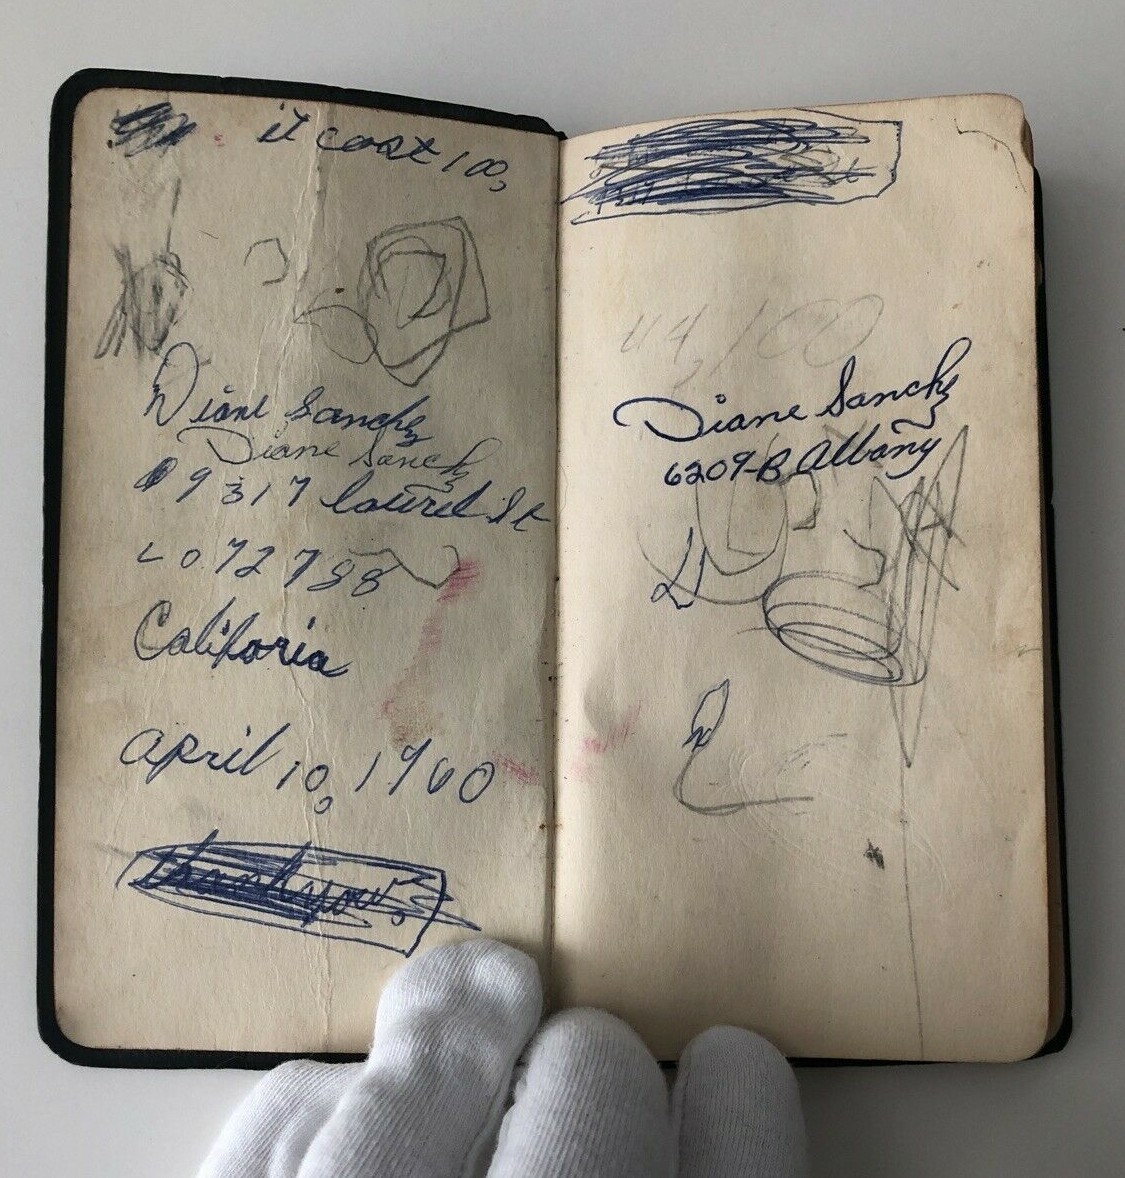 it cost 100,
Diane Sanchz
Diane Sanchz
9317 laurel St
LO 72788
Califoria
april 10, 1960
thank you.
44/100
Diane Sanchz
6209-B Albany